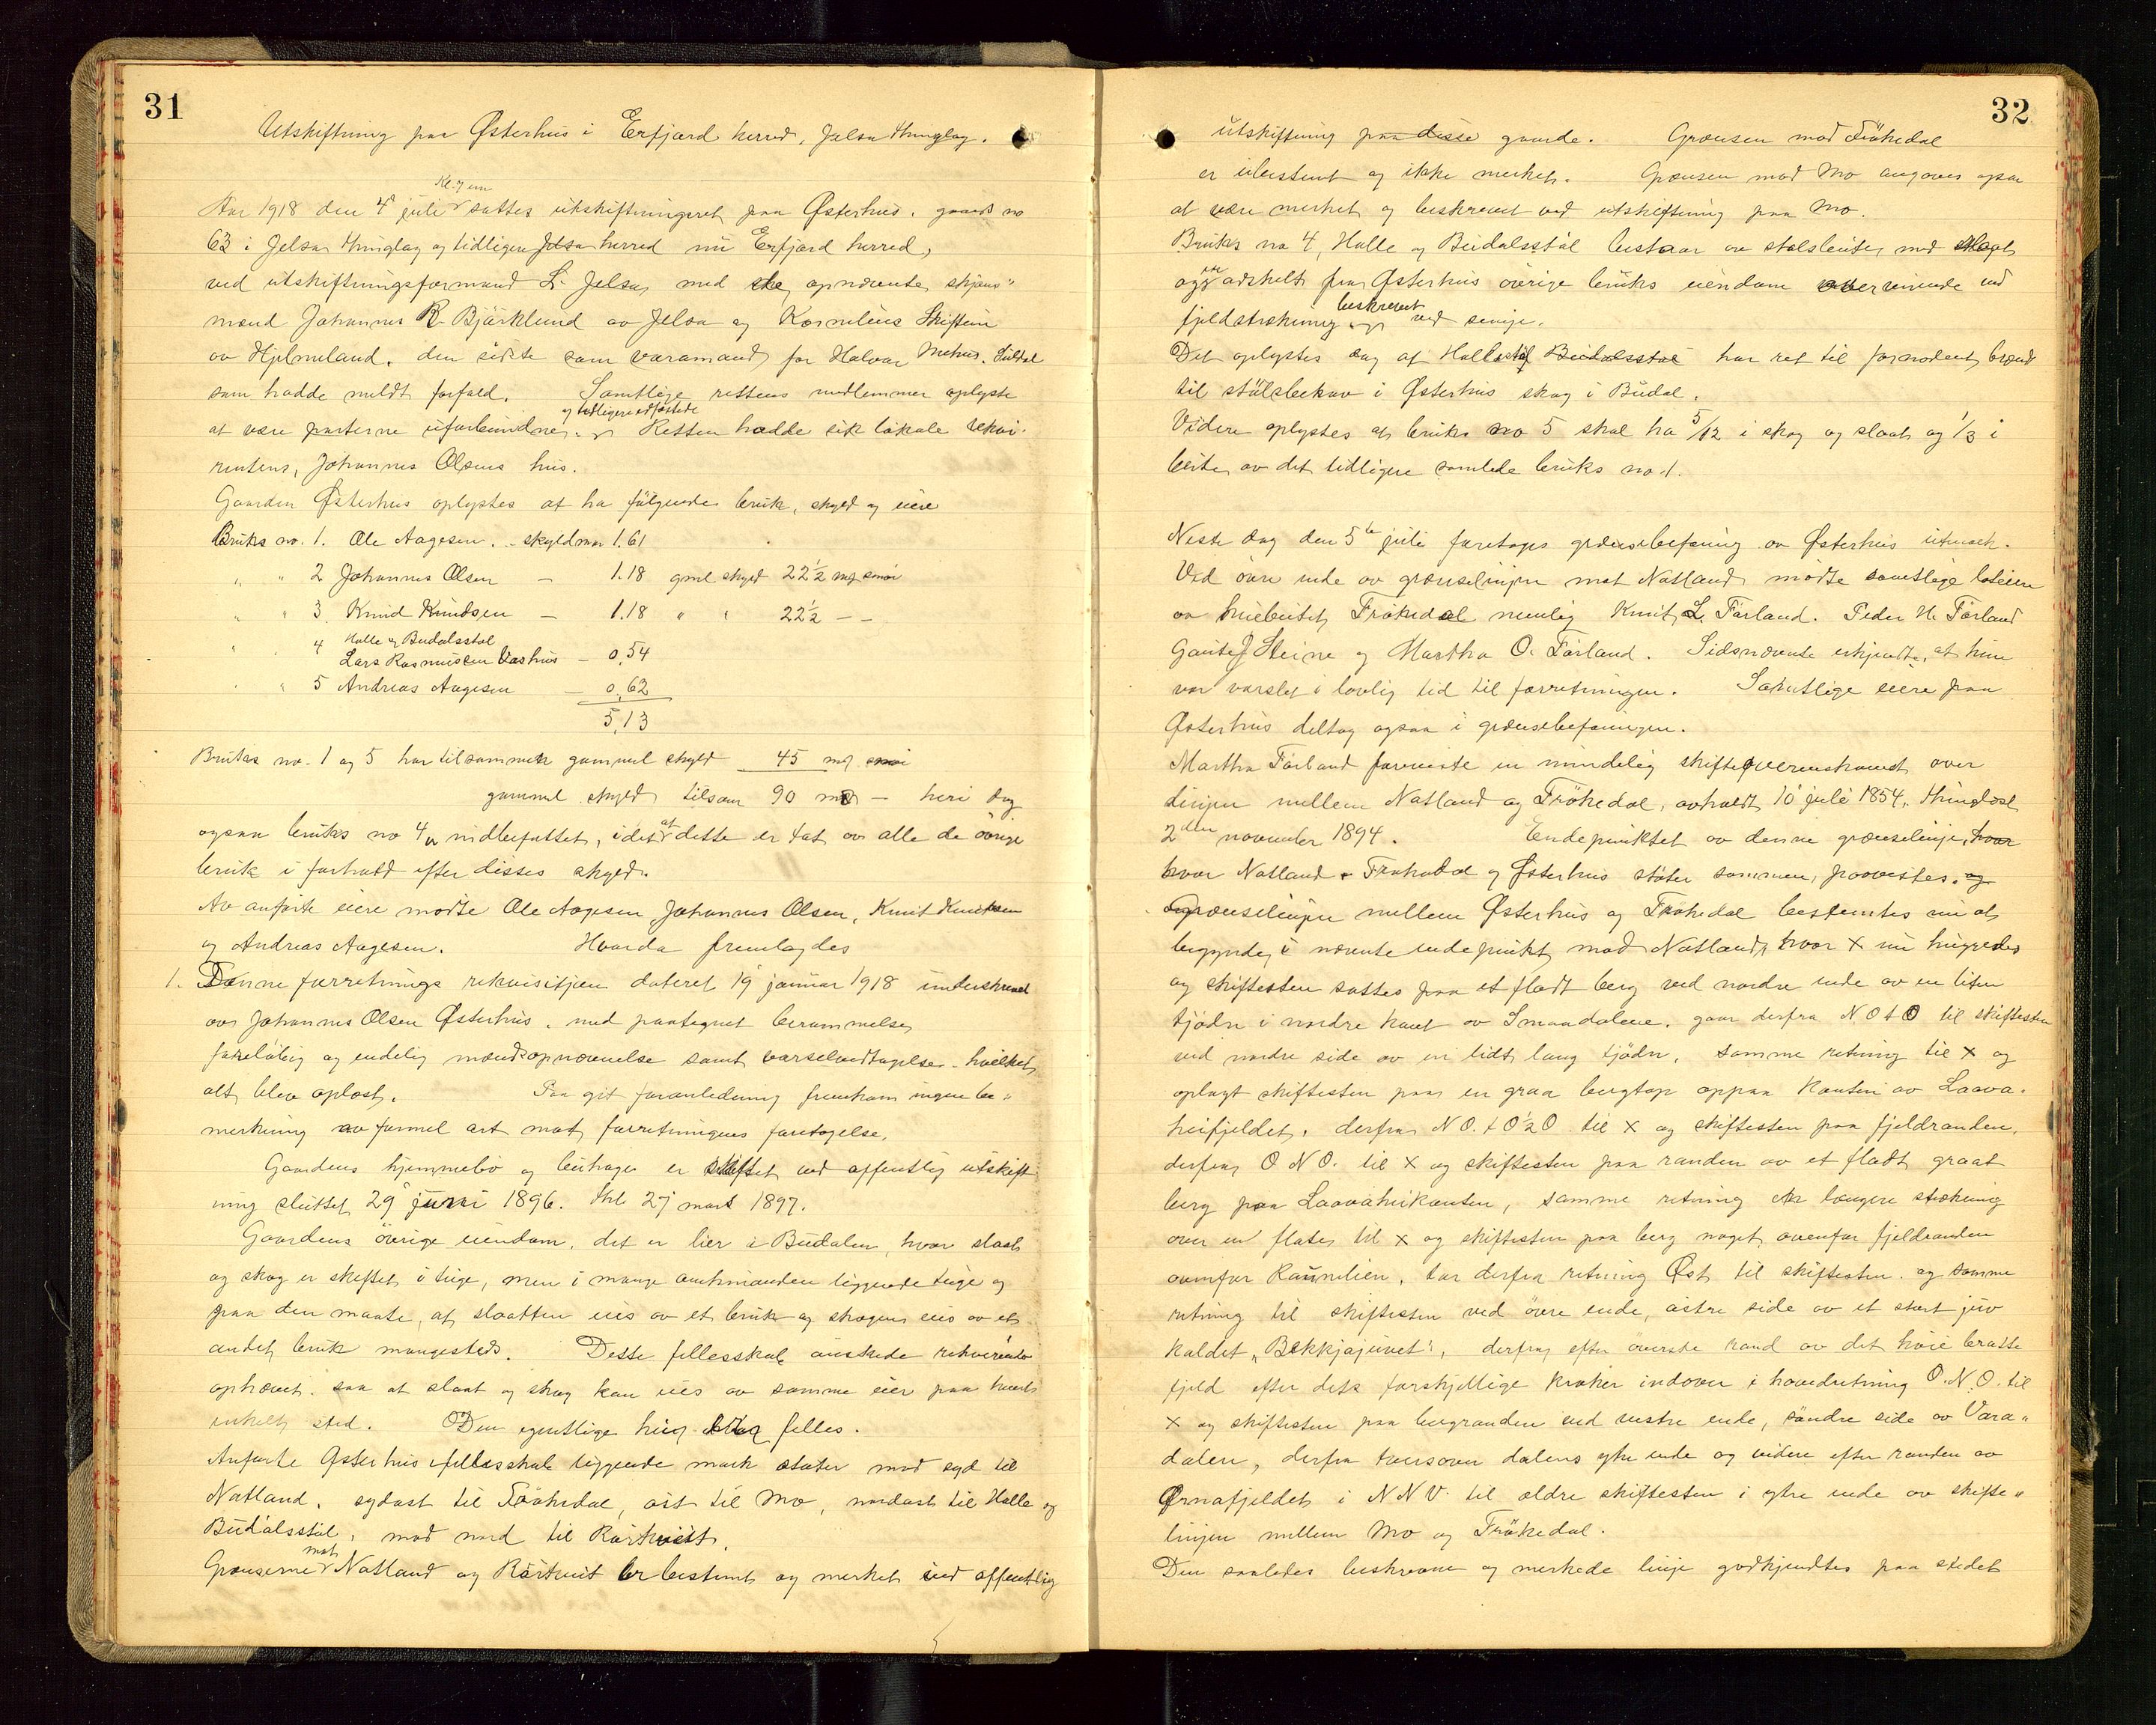 31
Utskiftning paa Østerhus i Erfjord herred, Jelsa thinglag.
Kl. 7 em
Aar 1918 den 4de juli sattes utskiftningsret paa Østerhus, gaards no
63 i Jelsa thinglag og tidligere Jelsa herred nu Erfjord herred,
ved utskiftningsformand L. Jelsa, med de opnævnte skjøns"
mænd Johannes R Bjørklund av Jelsa og Kornelius Skiftun
av Hjelmeland, den sidste som varamand for Halvor Mehus, Suldal
som hadde meldt forfald. Samtlige rettens medlemmer oplyste
og tidligere edfæstede
at være parterne uforbundne. Retten hadde sit lokale rekvi-
rentens, Johannes Olsens hus.
Gaarden Østerhus oplystes at ha følgende bruk, skyld og eiere
Bruks no. 1. Ole Aagesen. - skyldmark 1.61
" " 2 Johannes Olsen — 1.18 gml skyld 22½ mrk smør
" " 3. Knud Knudsen — 1.18 " " 22½ — —
Halle og Budalsstøl
" " 4 Lars Rasmussen Vashus — 0,54
" " 5 Andreas Aagesen — 0,62
5,13
Bruks no. 1 og 5 har tilsammen gammel skyld 45 mrk smør
gammel skyld tilsam 90 mrk — heri dog
ogsaa bruks no 4 indbefattet, idet at dette er tat av alle de øvrige
bruk i forhold efter disses skyld.
Av anførte eiere møtte Ole Aagesen, Johannes Olsen, Knut Knutsen
og Andreas Aagesen. Hvorda fremlagdes
1. Denne forretnings rekvisitjon dateret 19 januar 1918 underskrevet
av Johannes Olsen Østerhus, med paategnet berammelse,
foreløbig og endelig mændsopnævnelse samt varselvedtagelse - hvilket
alt blev oplæst. Paa git foranledning fremkom ingen be-"
merkning av formel art mot forretningens foretagelse.
Gaardens hjemmebø og beitehager er skiftet ved offentlig utskift
ning sluttet 29 juni 1896. thl 27 mars 1897.
Gaardens øvrige eiendom, det er lier i Budalen, hvor slaat
og skog er skiftet i teige, men i mange omhinanden liggende teige og
paa den maate, at slaatten eies av et bruk og skogen eies av et
andet bruk mangesteds. Dette fellesskab ønskede rekvirenten
ophævet, saa at slaat og skog kan eies av samme eier paa hvert
enkelt sted. Den egentlige hei ligger felles.
Anførte Østerhus i fellesskab liggende mark støter mod syd til
Natland, sydøst til Frøkedal, øst til Mo, nordøst til Halle og
Budalsstøl, mod nord til Rørtveit.
mot
Grænserne Natland og Rørtveit er bestemt og merket ved offentlig
32
utskiftning paa disse gaarde. Grænsen mod Frøkedal
er ubestemt og ikke merket. Grænsen mod Mo angaves ogsaa
at være merket og beskrevet ved utskiftning paa Mo.
Bruks no 4, Halle og Budalsstøl bestaar av stølsbeite, med skog,
og er adskilt fra Østerhus øvrige bruks eiendom overveiende ved
beskrevet
fjeldstrekning ved senige.
Det oplystes dog at Hallestøl Budalsstøl har ret til fornøden brænde
til stølsbehov i Østerhus skog i Budal.
Videre oplystes at bruks no 5 skal ha 5/12 i skog og slaat og 1/3 i
beite av det tidligere samlede bruks no 1.
Neste dag den 5te juli foretoges grænsebefaring av Østerhus utmark.
Ved øvre ende av grænselinjen mot Natland møtte samtlige lodeiere
av heiebeitet Frøkedal nemlig Knut L. Førland. Peder H. Førland
Gaute J Steine og Martha O. Førland. Sidsnævnte erkjendte, at hun
var varslet i lovlig tid til forretningen. Samtlige eiere paa
Østerhus deltog ogsaa i grænsebefaringen.
Martha Førland foreviste en mindelig skifteoverenskomst over
linjen mellem Natland og Frøkedal, avholdt 10 juli 1854, thinglæst
2den november 1894. Endepunktet av denne grænselinje, hvor
hvor Natland - Frøkedal og Østerhus støter sammen, paavistes. og
Grænselinjen mellem Østerhus og Frøkedal bestemtes nu at
begynde i nævnte endepunkt mod Natland, hvor × nu huggedes
og skiftesten sattes paa et fladt berg ved nordre ende av en liten
tjødn i nordre kant av Smaadalene, gaar derfra N O t O til skiftesten
ved nordre side av en lidt lang tjødn, samme retning til × og
oplagt skiftesten paa en graa bergtop oppaa kanten av Laava-
heifjeldet, derfra N O. t O ½ O til × og skiftesten paa fjeldranden,
derfra O N O. til × og skiftesten paa randen av et fladt graat
berg paa Laavaheikanten, samme retning en længere strekning
over en flate, til × og skiftesten paa berg noget ovenfor fjeldranden
ovenfor Raunelien, tar derfra retning Øst til skiftesten og samme
retning til skiftesten ved øvre ende, østre side av et stort juv
kaldet „Bekkjajuvet", derfra efter øverste rand av det høie bratte
fjeld efter dets forskjellige kroker indover i hovedretning O. N. O. til
× og skiftesten paa bergranden ved vestre ende, søndre side av Vara-"
dalen, derfra tversover dalens ytre ende og videre efter randen av
Ørnafjeldet i N N V. til ældre skiftesten i ytre ende av skifte-"
linjen mellem Mo og Frøkedal.
Den saaledes beskrevne og merkede linje godkjendtes paa stedet